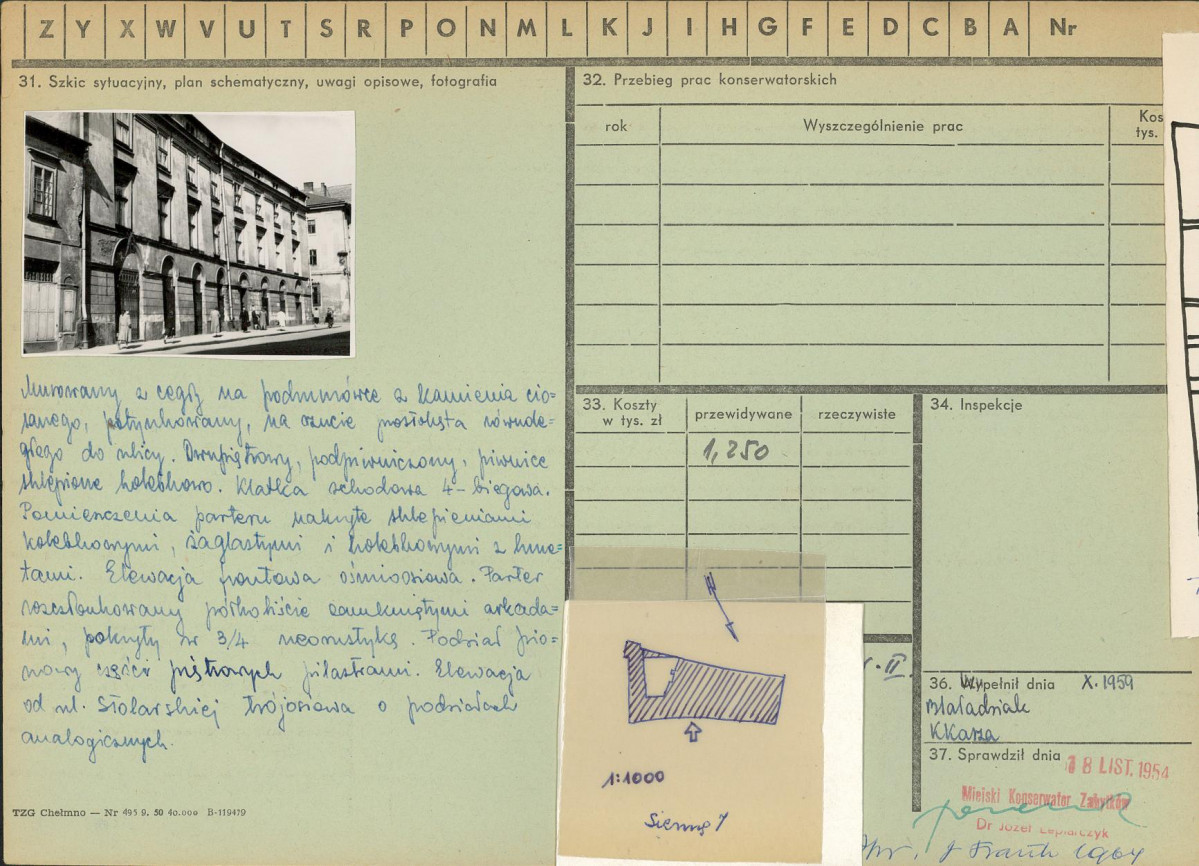 Z Y X W V U T S R P O N M L K J I H G F E D C B A Nr
31. Szkic sytuacyjny, plan schematyczny, uwagi opisowe, fotografia
Murowany z cegły na podmurówce z kamienia cio=
sanego, potynkowany, na rzucie prostokąta równole=
głego do ulicy. Dwupiętrowy, podpiwniczony, piwnice
sklepione kolebkowo. Klatka schodowa 4-biegowa.
Pomieszczenia parteru nakryte sklepieniami
kolebkowymi, żaglastymi i kolebkowymi z lune=
tami. Elewacja frontowa ośmioosiowa. Parter
rozczłonkowany półkoliście zamkniętymi arkada=
mi, pokryty w 3/4 neorustyką. Podział pio=
nowy części piętrowych pilastrami. Elewacja
od ul. Stolarskiej trójosiowa o podziałach
analogicznych.
TZG Chełmno — Nr 495 9. 50 40.000 B-119479
32. Przebieg prac konserwatorskich
rok
Wyszczególnienie prac
Kos
tys.
33. Koszty
w tys. zł
przewidywane
rzeczywiste
1,250
34. Inspekcje
1:1000
Sienna 7
II.
36. Wypełnił dnia X.1959
KKarza
37. Sprawdził dnia 18 LIST. 1954
Miejski Konserwator Zabytków
Dr Józef Lepiarczyk
1964